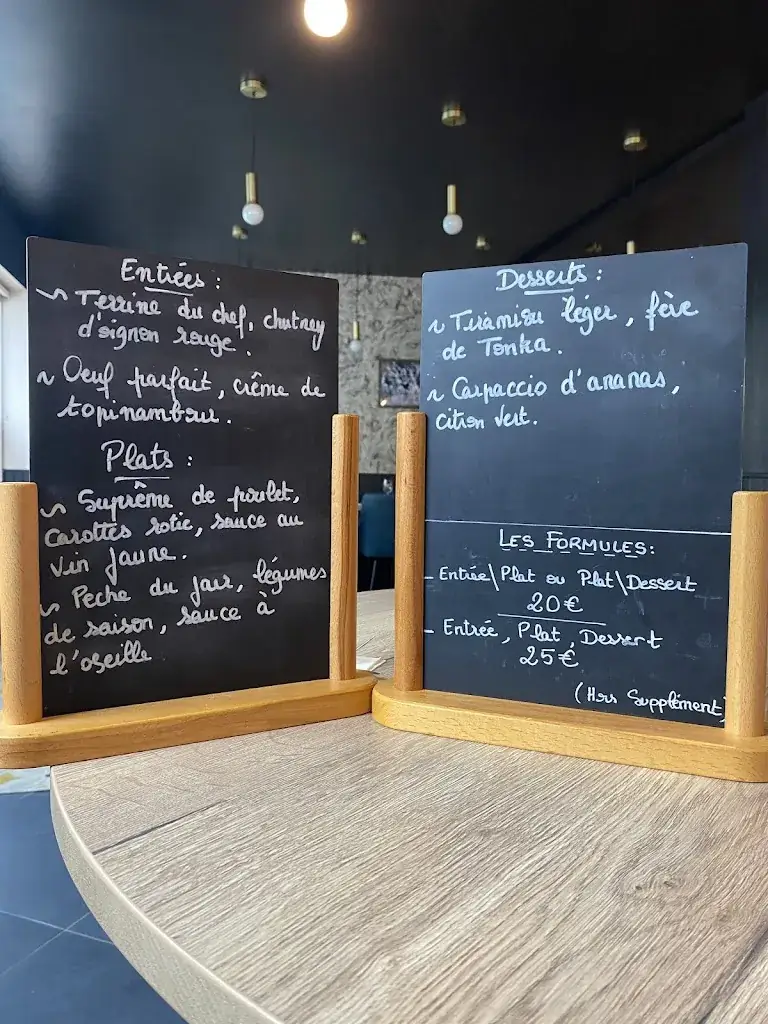 Entrées :
~ Terrine du chef, chutney
d'oignon rouge.
~ Oeuf parfait, crème de
topinambour.
Plats :
~ Suprême de poulet,
carottes rotie, sauce au
vin jaune.
~ Pêche du jour, légumes
de saison, sauce à
l'oseille
Desserts :
~ Tiramisu léger, fève
de Tonka.
~ Carpaccio d'ananas,
citron vert.
LES FORMULES:
- Entrée\Plat ou Plat\Dessert
20€
- Entrée, Plat, Dessert
25€
(Hors Supplément)